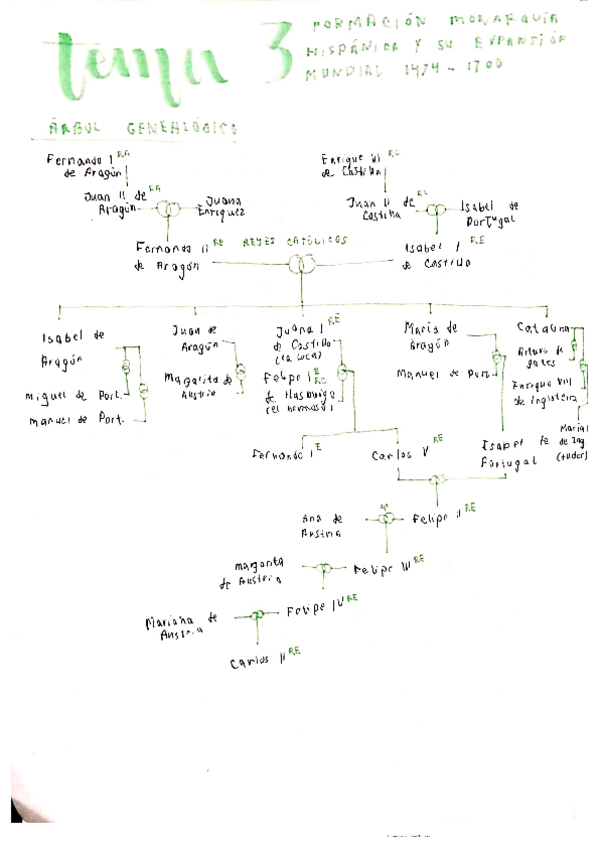 tema 3
FORMACIÓN MONARQUÍA
HISPÁNICA Y SU EXPANSIÓN
MUNDIAL 1474 - 1700
ÁRBOL GENEALÓGICO
Fernando I RA
de Aragón
Enrique III RC
de Castilla
Juan II de RA
Aragón
Juana
Enriquez
Juan II de RC
Castilla
Isabel de
Portugal
Fernando II RE
de Aragón
REYES CATÓLICOS
Isabel I RE
de Castilla
Isabel de
Aragón
miguel de Port.
manuel de Port.
Juan de
Aragón
Margarita de
Austria
Juana I RE
de Castilla
(la loca)
Felipe I
de Hasburgo
(el hermoso)
María de
Aragón
Manuel de Port.
Catalina
Arturo de
gales
Enrique VIII
de Inglaterra
Maria I
de Ing.
(tudor)
Fernando I E
Carlos V RE
Isabel de
Portugal
Ana de
Austria
4º
Felipe II RE
margarita
de Austria
Felipe III RE
Mariana de
Austria
Felipe IV RE
Carlos II RE